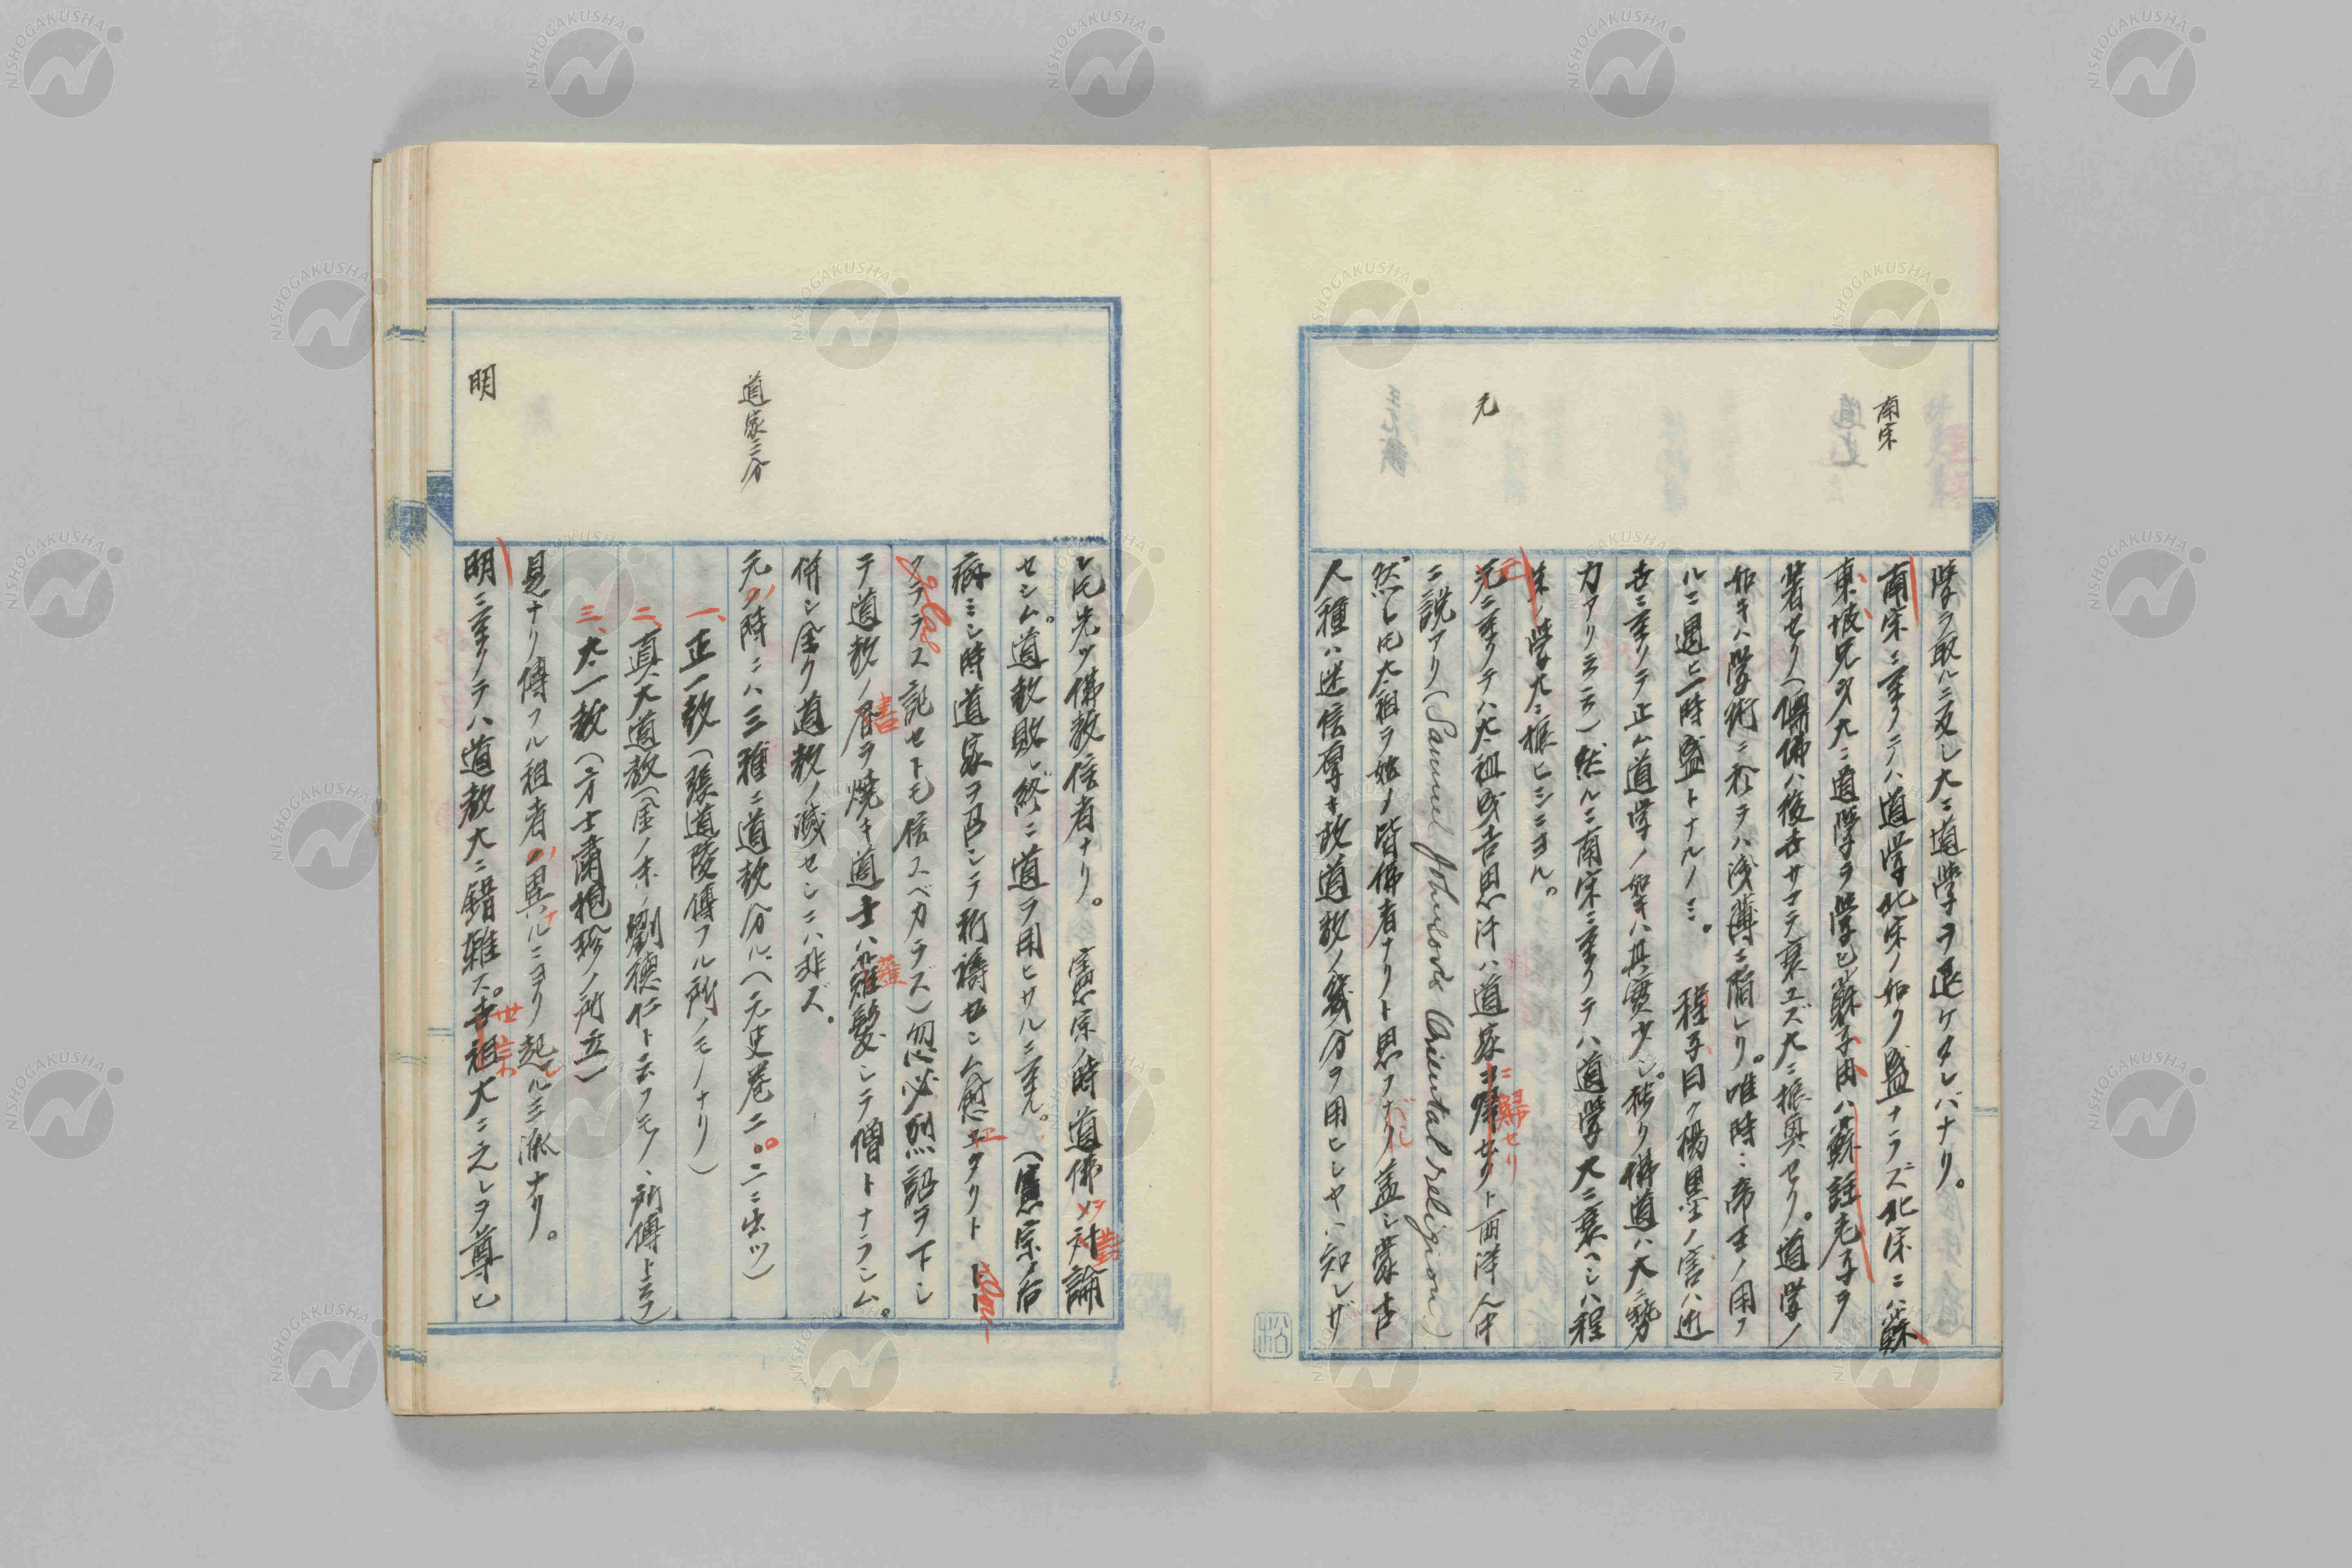 南宋
元
学ヲ取ルニ反シ大ニ道学ヲ退ケタレバナリ。
南宋ニ至リテハ道学北宋ノ如ク盛ナラズ北宋ニハ蘇
東坡兄弟大ニ道学ヲ学ヒ蘇子由ハ蘇註老子ヲ
著セリ(傳佛ハ後世サマデ衰エズ大ニ振興セリ。道学ノ
如キハ学術ニ於ヲハ浅薄ニ陥レリ。唯時ニ帝王ノ用フ
ルニ遇ヒ一時盛トナルノミ。 程子曰ク楊墨ノ害ハ近
世ニ至リテ止ム道学ノ如キハ其實少シ。独リ佛道ハ大ニ勢
力アリ云云)然ルニ南宋ニ至リテハ道学大ニ衰ヘシハ程
朱ノ学大ニ振ヒシニヨル。
元ニ至リテハ太祖成吉思汗ハ道家ニ歸セリト西洋人中
ニ説アリ(Samuel Johnson's Oriental religion.)
然レ氏太祖ヲ始メ皆佛者ナリト思ハル蓋シ蒙古
人種ハ迷信厚キ故道教ノ幾分ヲ用ヒシヤハ知レザ
道家三分
明
レ氏先ツ佛教信者ナリ。 憲宗ノ時道佛ヲ対論
セシム。道教敗レ終ニ道ヲ用ヒサルニ至ル。(憲宗ノ后
病ミシ時道家ヲ召シテ祈禱セシム愈エタリト
クララス記セトモ信スベカラズ)忽必烈詔ヲ下シ
テ道教ノ書ヲ焼キ道士ハ薙髪シテ僧トナラシム。
併シ全ク道教ノ滅センニハ非ズ。
元ノ時ニハ三種ニ道教分ル、(元史巻二〇二ニ出ツ)
一、正一教(張道陵傳フル所ノモノナリ)
二、真大道教(金ノ末ノ劉徳仁ト云フモノヽ所傳ト云フ)
三、太一教(方士蕭抱珍ノ所立)
是ナリ傳フル祖者ノ異ナルニヨリ起レル三派ナリ。
明ニ至リテハ道教大ニ錯雑ス。世宗大ニ之レヲ尊ヒ